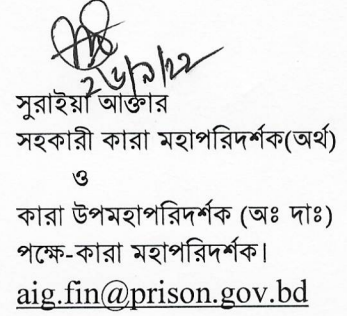 ২৬/৯/২২
সুরাইয়া আক্তার
সহকারী কারা মহাপরিদর্শক(অর্থ)
ও
কারা উপমহাপরিদর্শক (অঃ দাঃ)
পক্ষে-কারা মহাপরিদর্শক।
aig.fin@prison.gov.bd